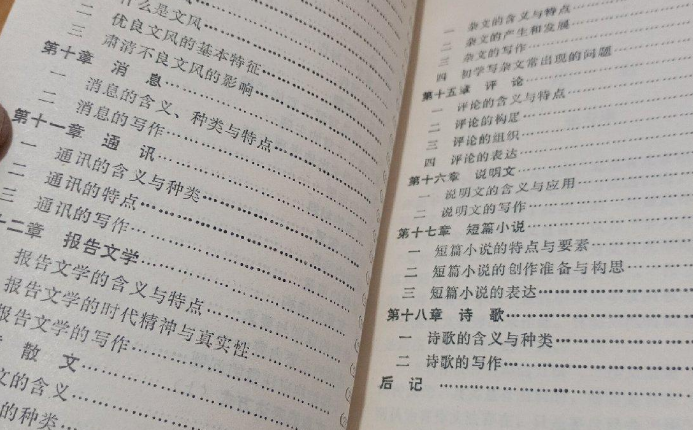 什么是文风
二 优良文风的基本特征
三 肃清不良文风的影响
第十章 消息
一 消息的含义、种类与特点
二 消息的写作
第十一章 通讯
一 通讯的含义与种类
二 通讯的特点
三 通讯的写作
十二章 报告文学
报告文学的含义与特点
报告文学的时代精神与真实性
报告文学的写作
散文
文的含义
的种类
一 杂文的含义与特点
二 杂文的产生和发展
三 杂文的写作
四 初学写杂文常出现的问题
第十五章 评论
一 评论的含义与特点
二 评论的构思
三 评论的组织
四 评论的表达
第十六章 说明文
一 说明文的含义与应用
二 说明文的写作
第十七章 短篇小说
一 短篇小说的特点与要素
二 短篇小说的创作准备与构思
三 短篇小说的表达
第十八章 诗歌
一 诗歌的含义与种类
二 诗歌的写作
后记